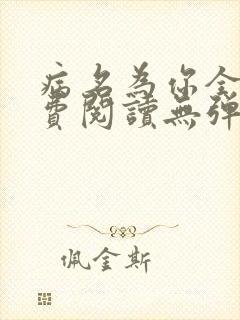 病名為你全
費閱讀無彈
佩金斯